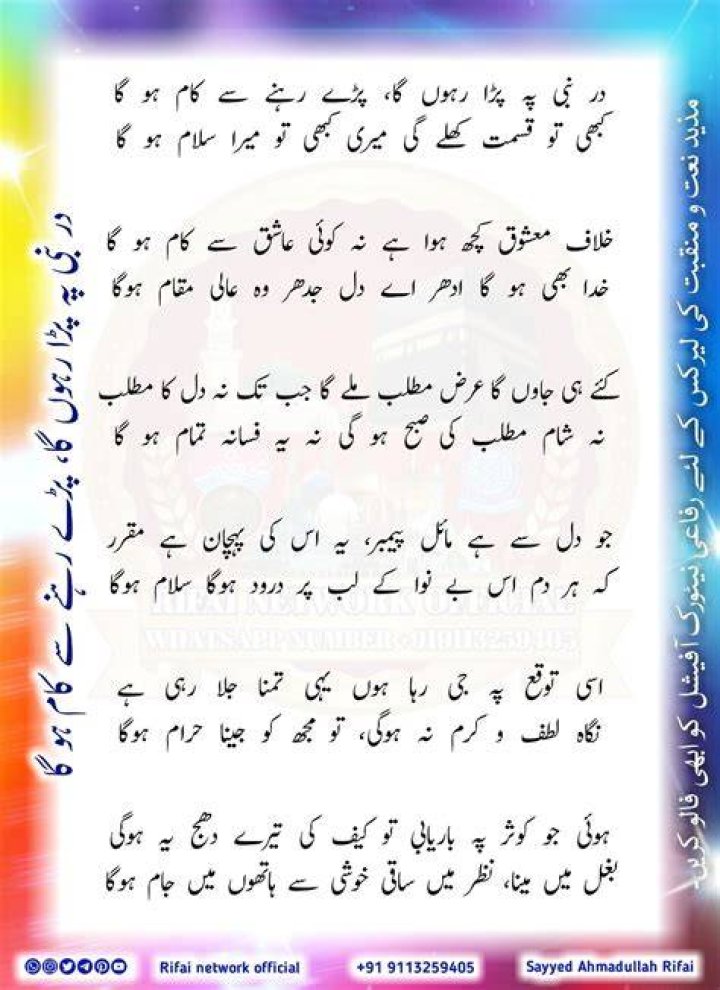 در نبی پہ پڑا رہوں گا، پڑے رہنے سے کام ہو گا
کبھی تو قسمت کھلے گی میری کبھی تو میرا سلام ہو گا
خلاف معشوق کچھ ہوا ہے نہ کوئی عاشق سے کام ہو گا
خدا بھی ہو گا ادھر اے دل جدھر وہ عالی مقام ہوگا
کئے ہی جاوں گا عرض مطلب ملے گا جب تک نہ دل کا مطلب
نہ شام مطلب کی صبح ہو گی نہ یہ فسانہ تمام ہو گا
جو دل سے ہے مائل پیمبر، یہ اس کی پہچان ہے مقرر
کہ ہر دم اس بے نوا کے لب پر درود ہوگا سلام ہوگا
اسی توقع پہ جی رہا ہوں یہی تمنا جلا رہی ہے
نگاہ لطف و کرم نہ ہوگی، تو مجھ کو جینا حرام ہوگا
ہوئی جو کوثر پہ باریابی تو کیف کی تیرے دھج یہ ہوگی
بغل میں مینا، نظر میں ساقی خوشی سے ہاتھوں میں جام ہوگا
در نبی پہ پڑا رہوں گا، پڑے رہنے سے کام ہو گا
مذید نعت و منقبت کی لیرکس کے لئے رفاعی نیٹورک آفیشل کو ابھی فالو کریں۔
RIFAI NETWORK OFFICIAL
WHATSAPP NUMBER +919113259405
Rifai network official
+91 9113259405
Sayyed Ahmadullah Rifai